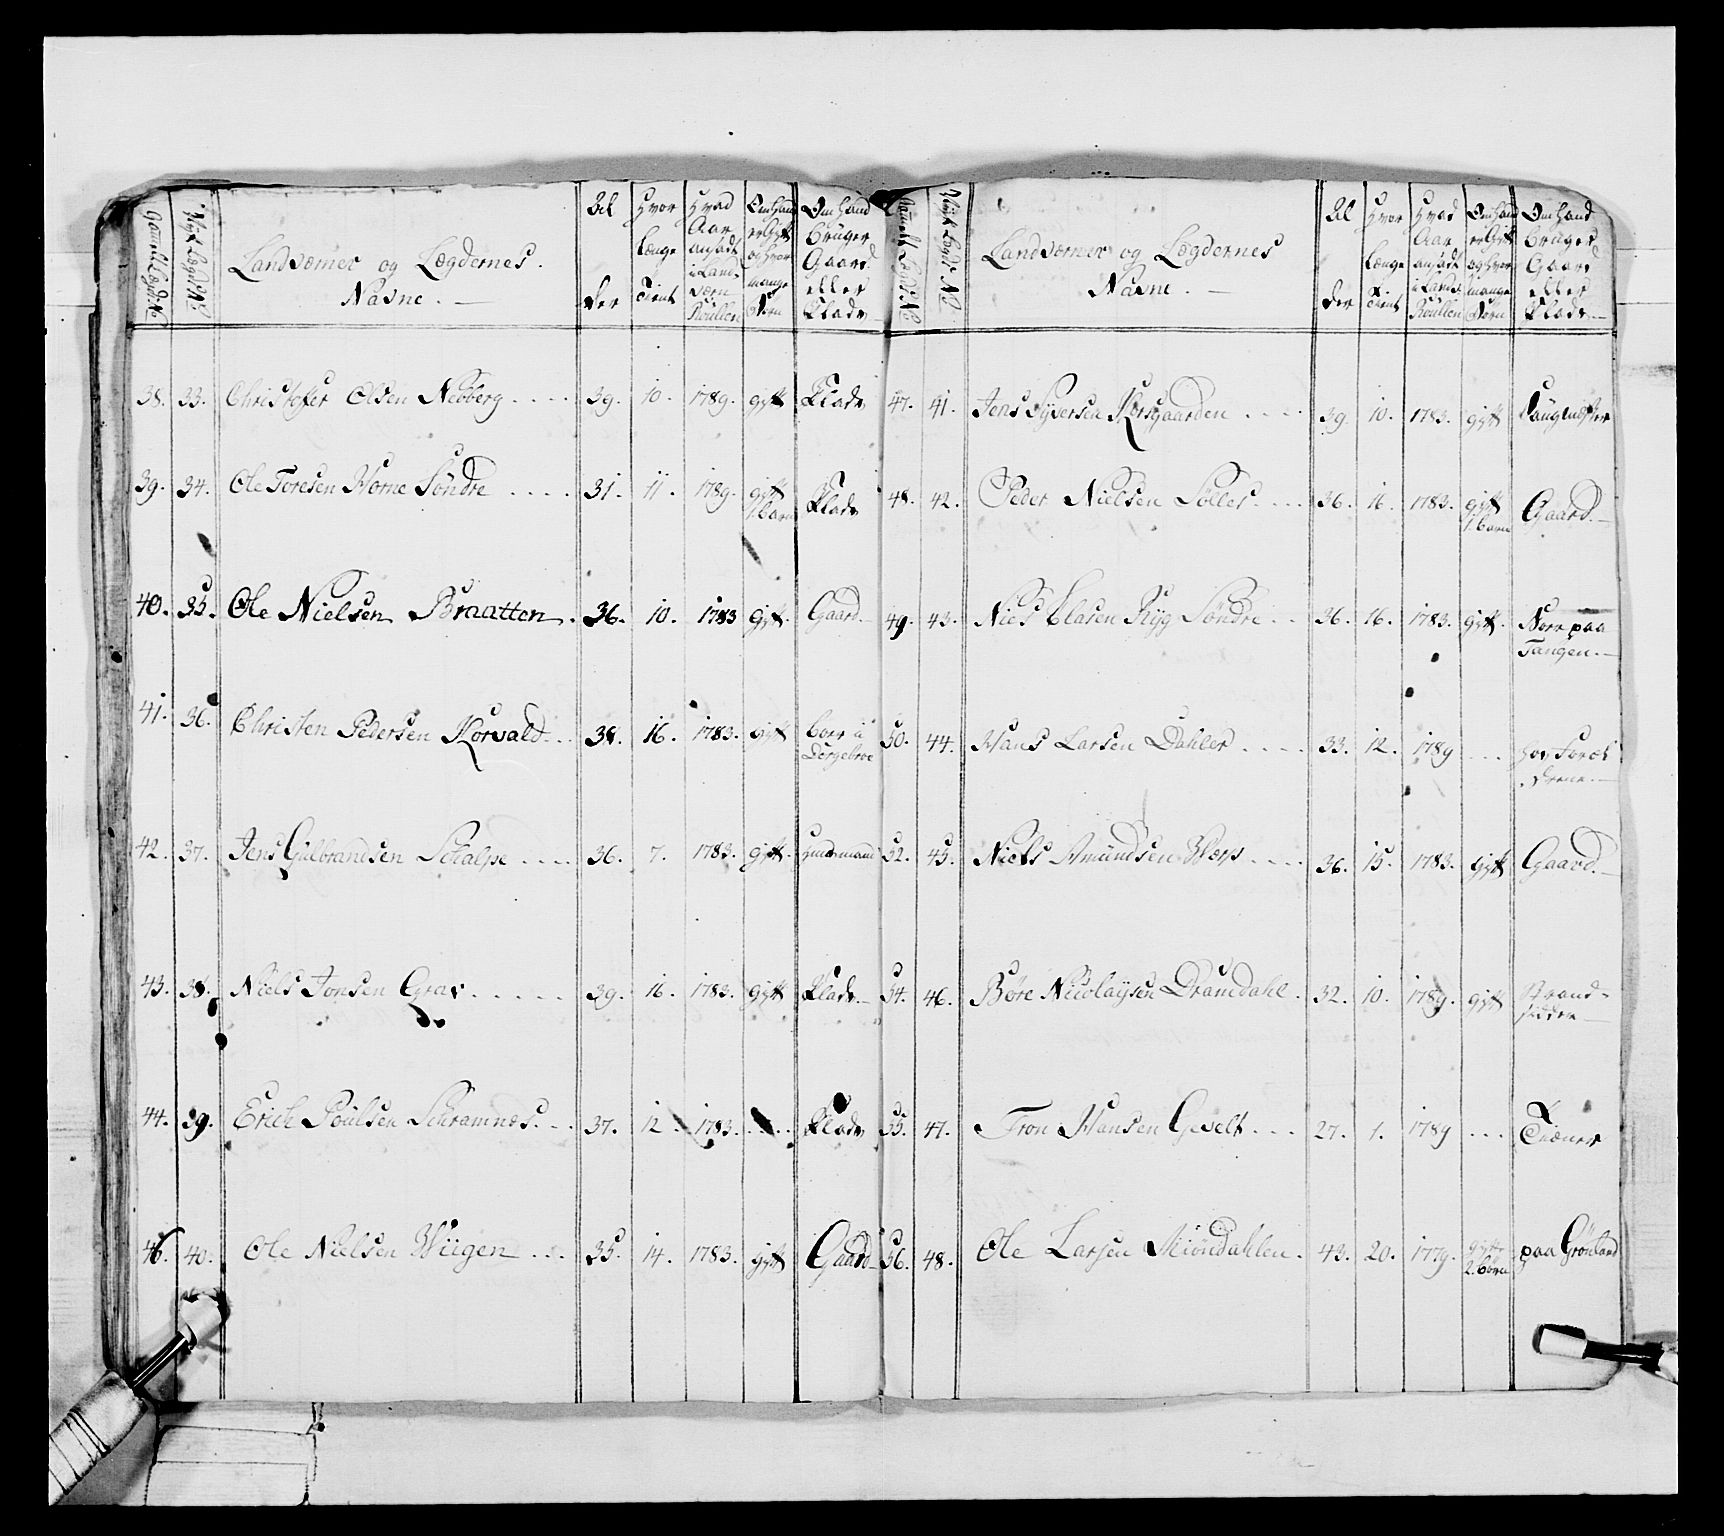 Gammel Lægds No
Nye Lægds No
Landværner og Lægdernes
Navne.
Al
der
Hvor
længe
Tient
Hvad
Aar
ansadt
i Land-
værn
Roullen
Om Hand
er Gift
og hvor
mange
Børn
Om Hand
bruger
Gaard
eller
Plads
38. 33. Christofer Olsen Nebberg .... 39. 10. 1789. gift Plads
39. 34. Ole Toresen Horne Søndre .... 31. 11. 1789. gift Plads
1. barn
40. 35. Ole Nielsen Braatten. 36. 10. 1783 Gift. Gaard
41. 36. Christen Pedersen Korvald.. 38. 16. 1783. gift boer i
42. 37. Jens Gulbrandsen Schalpe .... 36. 7. 1783. Gift. Huusmand
43. 38. Niels Jonsen Grav ..... 39. 16. 1783. Gift Plads
44. 39. Erich Poulsen Schramnæs... 37. 12. 1783. .... Plads
46. 40. Ole Nielsen Wiigen ... 35. 14. 1783. gift Gaard
Gammel Lægds No
Nye Lægds No
Landværner og Lægdernes
Navne.
Al
der
Hvor
længe
Tient
Hvad
Aar
ansadt
i Lands
Roullen
Om Hand
er Gift
og hvor
mange
Børn
Om Hand
bruger
Gaard
eller
Plads
47. 41. Jens Syversen Korsgaarden .... 39. 10. 1783. gift
48. 42. Peder Nielsen Solles.... 36. 16. 1783. gift Gaard.
1. barn
49. 43. Niels Clasen Ryg Søndre .. 36. 16. 1783. gift. Boer paa
Tangen.
50. 44. Hans Larsen Dahler .... 33. 12. 1789 ... hos Foræl
drene.
52. 45. Niels Amundsen Werp .... 36. 15. 1783. gift Gaard.
54. 46. Børe Nicolaysen Dramdahl. 32. 10. 1789. gift Strand-
sidder
55. 47. Tron Hansen Gevelt ... 27. 1. 1789 ... Tiæner
56. 48. Ole Larsen Miøndahlen. 43. 20. 1779. gift paa Grønland
2. børn